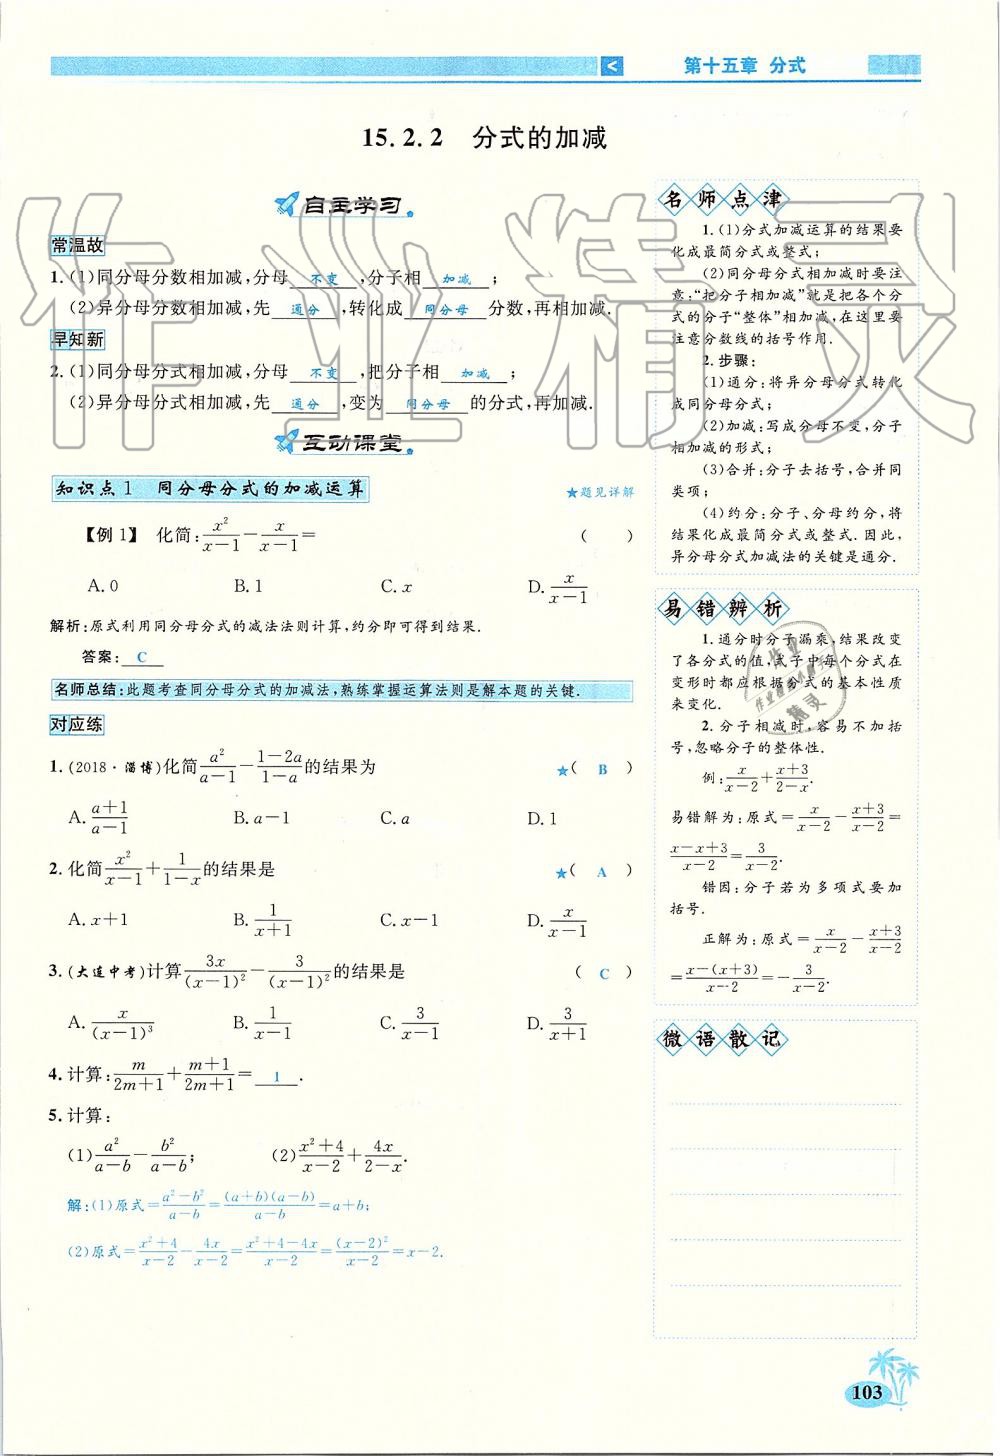 第十五章 分式
15.2.2 分式的加减
自主学习
常温故
1. (1)同分母分数相加减,分母 不变 ,分子相 加减 ;
(2)异分母分数相加减,先 通分 ,转化成 同分母 分数,再相加减.
早知新
2. (1)同分母分式相加减,分母 不变 ,把分子相 加减 ;
(2)异分母分式相加减,先 通分 ,变为 同分母 的分式,再加减.
互动课堂
知识点1 同分母分式的加减运算
★题见详解
【例1】 化简:x²/(x-1)-x/(x-1)= ( )
A. 0 B. 1 C. x D. x/(x-1)
解析:原式利用同分母分式的减法法则计算,约分即可得到结果.
答案: C
名师总结:此题考查同分母分式的加减法,熟练掌握运算法则是解本题的关键.
对应练
1. (2018·淄博)化简a²/(a-1)-(1-2a)/(1-a)的结果为 ★( B )
A. (a+1)/(a-1) B. a-1 C. a D. 1
2. 化简x²/(x-1)+1/(1-x)的结果是 ★( A )
A. x+1 B. 1/(x+1) C. x-1 D. x/(x-1)
3. (大连中考)计算3x/(x-1)²-3/(x-1)²的结果是 ( C )
A. x/(x-1)³ B. 1/(x-1) C. 3/(x-1) D. 3/(x+1)
4. 计算:m/(2m+1)+(m+1)/(2m+1)= 1 .
5. 计算:
(1)a²/(a-b)-b²/(a-b); (2)(x²+4)/(x-2)+4x/(2-x).
解:(1)原式=(a²-b²)/(a-b)=(a+b)(a-b)/(a-b)=a+b;
(2)原式=(x²+4)/(x-2)-4x/(x-2)=(x²+4-4x)/(x-2)=(x-2)²/(x-2)=x-2.
名师点津
1. (1)分式加减运算的结果要
化成最简分式或整式;
(2)同分母分式相加减时要注
意:“把分子相加减”就是把各个分
式的分子“整体”相加减,在这里要
注意分数线的括号作用.
2. 步骤:
(1)通分:将异分母分式转化
成同分母分式;
(2)加减:写成分母不变,分子
相加减的形式;
(3)合并:分子去括号,合并同
类项;
(4)约分:分子、分母约分,将
结果化成最简分式或整式.因此,
异分母分式加减法的关键是通分.
易错辨析
1. 通分时分子漏乘,结果改变
了各分式的值,式子中每个分式在
变形时都应根据分式的基本性质
来变化.
2. 分子相减时,容易不加括
号,忽略分子的整体性.
例:x/(x-2)+(x+3)/(2-x).
易错解为:原式=x/(x-2)-(x+3)/(x-2)=
(x-x+3)/(x-2)=3/(x-2).
错因:分子若为多项式要加
括号.
正解为:原式=x/(x-2)-(x+3)/(x-2)
=(x-(x+3))/(x-2)=-3/(x-2).
微语散记
103
作业精灵